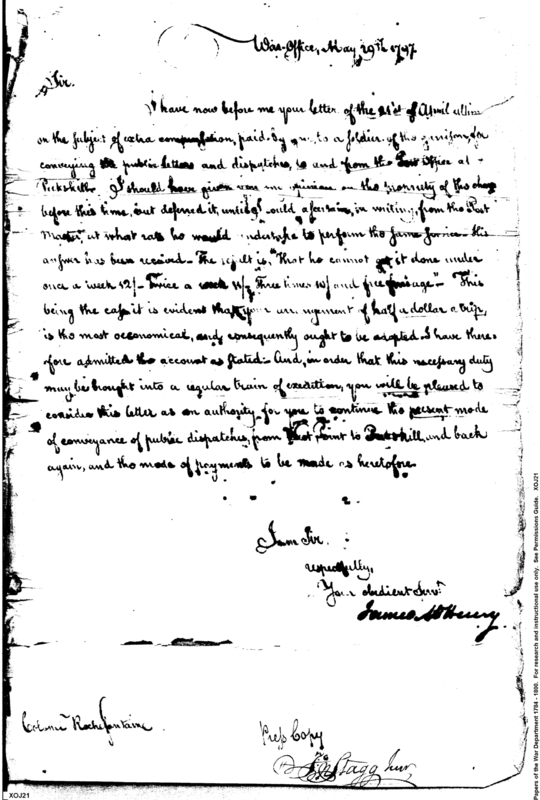 War-Office, May 29th 1797
Sir.
I have now before me your letter of the 21st of April ultimo
on the subject of extra compensation, paid by you, to a soldier of the garrison, for
conveying the public letters and dispatches, to and from the Post Office at
Peekskill. I should have given you my opinion on the propriety of this charge
before this time, but deferred it, until I could ascertain, in writing, from the Post
Master, at what rate he would undertake to perform the same service. His
answer has been received. The result is, "That he cannot get it done under
once a week 12/- Twice a week Three times and free passage". This
being the case it is evident that your arrangement of half a dollar a trip,
is the most oeconomical, and consequently ought to be adopted. I have there-
fore admitted the account as stated. And, in order that this necessary duty
may be brought into a regular train of execution, you will be pleased to
consider this letter as an authority for you to continue the present mode
of conveyance of public dispatches, from West Point to Peekskill, and back
again, and the mode of payments to be made as heretofore.
I am Sir.
respectfully,
Your obedient Servt.
James McHenry
Colonel Rochefontaine
Press Copy
Stagg Junr
XOJ21
Papers of the War Department 1784 - 1800. For research and instructional use only. See Permissions Guide. XOJ21